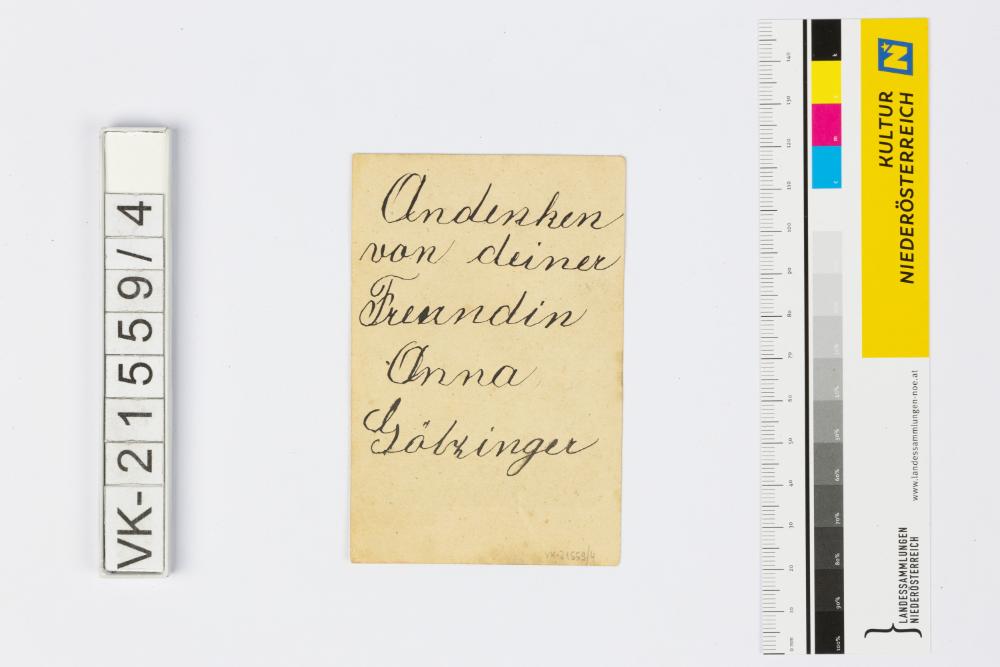 Andenken
von deiner
Freundin
Anna
Götzinger
VK-21559/4
VK-21559/4
KULTUR
NIEDERÖSTERREICH
www.landessammlungen-noe.at
LANDESSAMMLUNGEN
NIEDERÖSTERREICH